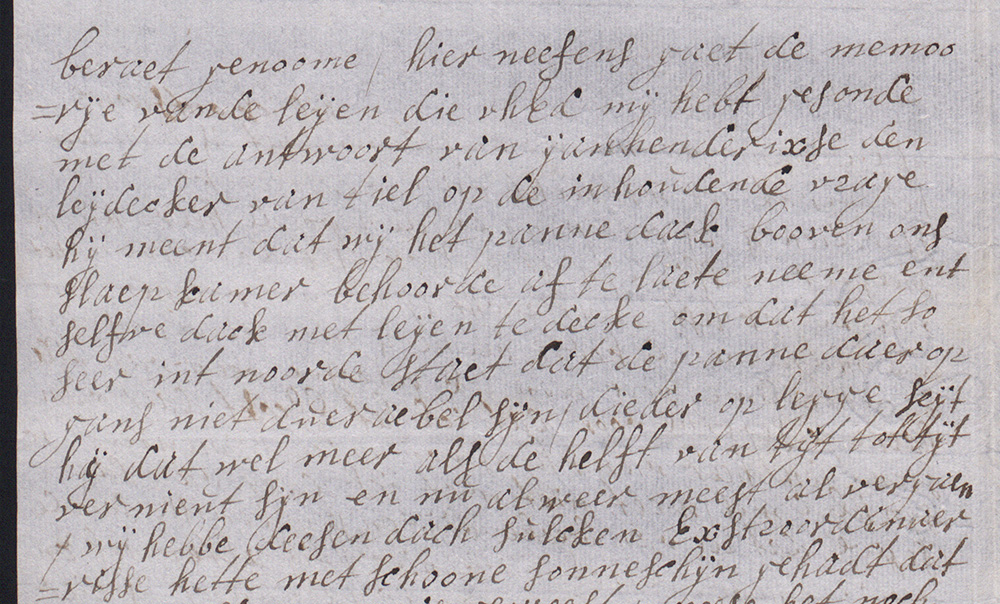 beraet genoome / hier neesens gaet de memoo
=rije vande leijen die uhEd mij hebt gesonde
met de antwoort van ijan henderixse den
leijdecker van tiel op de inhoudende vrage
hij meent dat wij het panne dack booven ons
slaep kamer behoorde af te laete neeme ent
selfve dack met leijen te decke om dat het so
seer int noorde staet dat de panne daer op
gans niet dueraebel sijn / dieder op legge seijt
hij dat wel meer als de helft van tijt tot tijt
vernieut sijn en nu al weer meest al vergaen
/ wij hebbe deesen dach sulcken Exstroordinaer
=risse hette met schoone sonneschijn gehadt dat
het noch